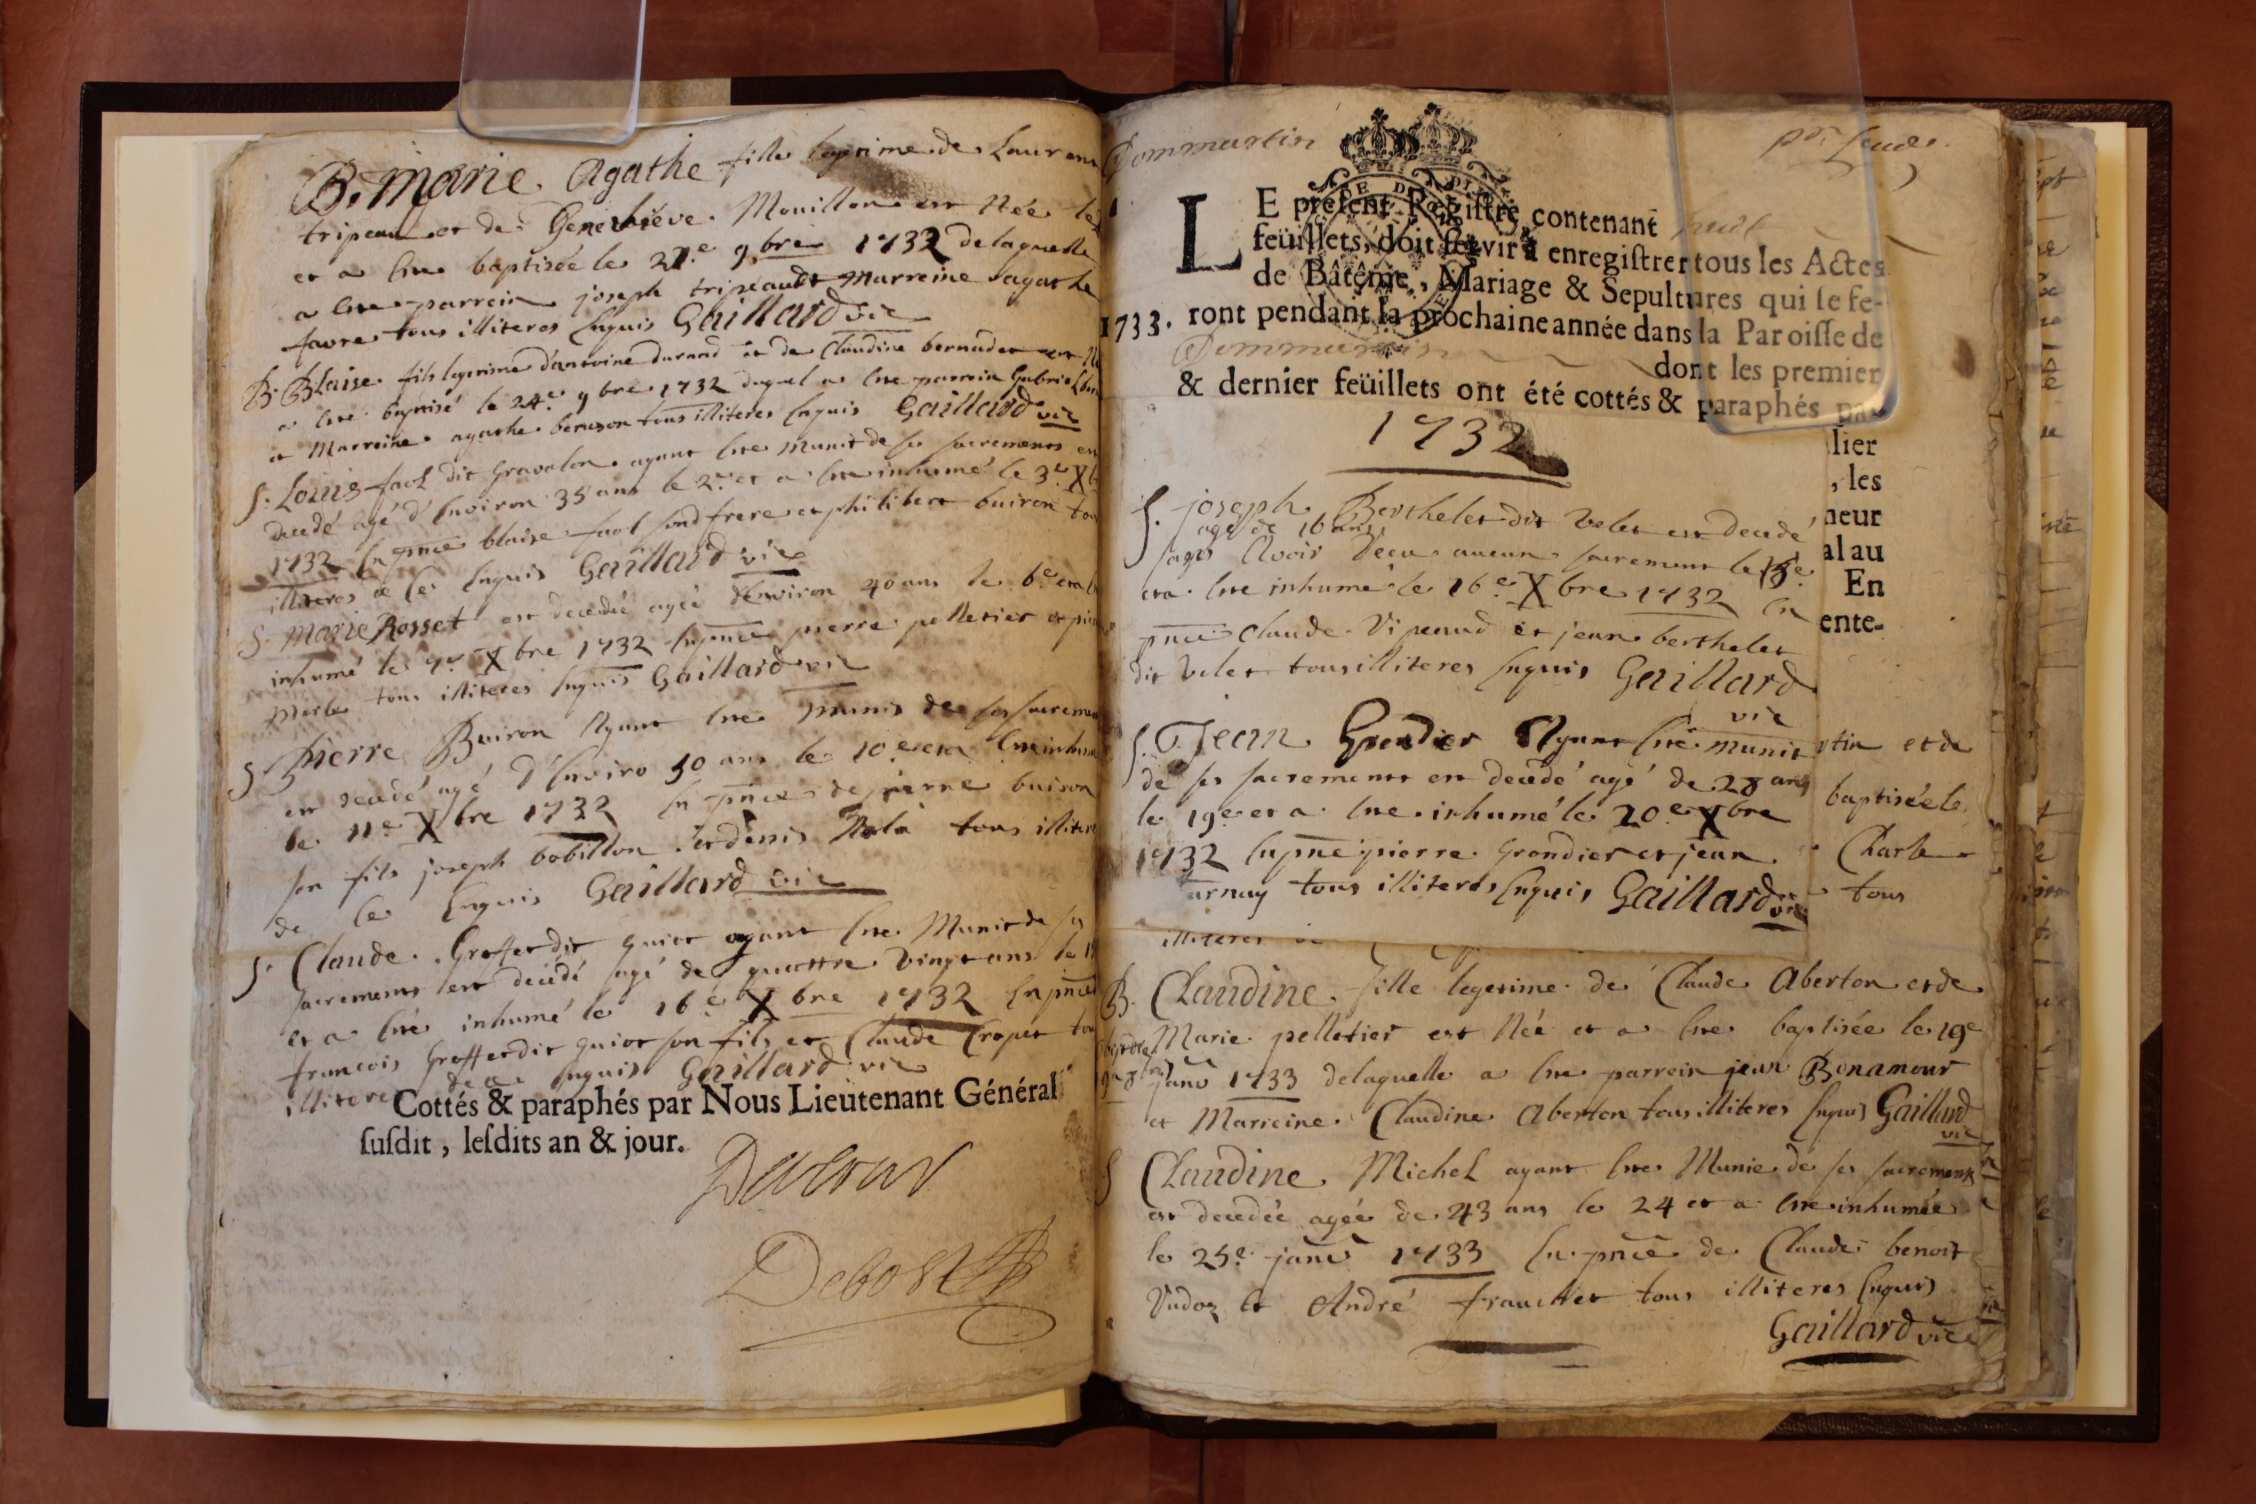 B. Marie Agathe fille legitime de Laurent
tripeau et de Genevieve Mouillon est Née le
et a Ete baptisée le 27.e 9bre 1732 de laquelle
a Ete parrein joseph tripeau et Marreine agathe
favre tous illiteres Enquis Gaillard vic
B. Blaise fils legitime d'antoine durand et de Claudine bernudet est
a Ete baptisé le 24.e 9bre 1732 duquel a Ete parrein Gabriel
et Marreine agathe tous illiteres Enquis Gaillard vic
S. Louis dit Gravalon ayant Ete Munit de ses sacrements
decedé agé d'Environ 35 ans le 2.e et a Ete inhumé le 3.e X
1732 En pnce blaise son frere et philibert buiron
illiteres de ce Enquis Gaillard vic
S. Marie Rosset est decedée agée d'Environ 40 ans le 6.e et a
inhumé le 7.e Xbre 1732 En pnce pierre pelletier et
Merle tous illiteres Enquis Gaillard vic
S. Pierre Buiron Ayant Ete Munis de ses sacremen
est decedé agé d'Enviro 50 ans le 10.e et a Ete inhum
le 11.e Xbre 1732 En pnce de pierre buiron
son fils joseph bobillon et denis tous illiter
de ce Enquis Gaillard vic
S. Claude Groffet dit guiot ayant Ete Munit de ses
sacrements est decedé agé de quattre Vingt ans le
et a Ete inhumé le 16.e Xbre 1732 En pnce
francois Groffet dit guiot son fils et Claude Cropet
illitere de ce Enquis Gaillard vic
Cottés & paraphés par Nous Lieutenant Général
ſuſdit, leſdits an & jour.
Dommartin
LE preſent Regiſtre, contenant huit
feüillets, doit ſervir à enregiſtrer tous les Actes
de Bâtême, Mariage & Sepultures qui ſe fe-
1733. ront pendant la prochaine année dans la Paroiſſe de
Dommartin dont les premier
& dernier feüillets ont été cottés & paraphés par
lier
, les
neur
al au
En
ente-
1732
S. joseph Berthelet dit Velet est decedé
agé de 16 ans
sans Avoir Receu aucun sacrement le 15.e
et a Ete inhumé le 16.e Xbre 1732 En
pnce Claude Vipeaud et jean berthelet
dit Velet tous illiteres Enquis Gaillard
vic
S. Jean Grondier Ayant Ete Munit
de ses sacrements est decedé agé de 28 ans
le 19.e et a Ete inhumé le 20.e Xbre
1732 En pnce pierre Grondier et jean
arnay tous illiteres Enquis Gaillard vic
rtin et de
baptisée le
Charle
tous
illiteres
B. Claudine fille legetime de Claude Aberton et de
Marie pelletier est Née et a Ete baptisée le 19e
janv 1733 de laquelle a Ete parrein jean Bonamour
et Marieine Claudine Aberton tous illiteres Enquis Gaillard
vic
S Claudine Michel ayant Ete Munie de ses sacrements
est decedée agée de 43 ans le 24 et a Ete inhumée
le 25.e janv 1733 En pnce de Claude benoit
Vudoz et André franchet tous illiteres Enquis
Gaillard vic